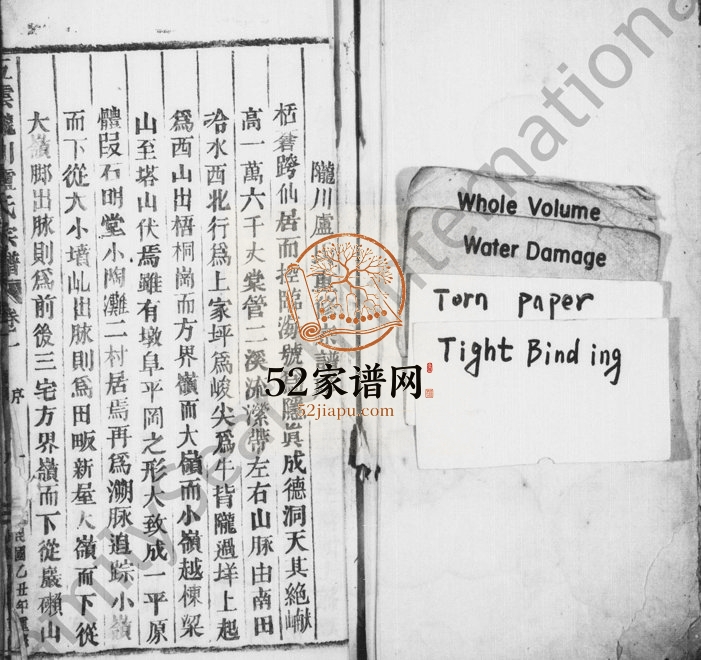 隴川盧
栝蒼跨仙居而 臨海號 隱眞成德洞天其絶巘
高一萬六千丈棠管二溪流瀠帶左右山脉由南田
冾水西北行爲上家坪爲峻尖爲牛背隴過垟上起
爲西山出梧桐崗而方界嶺而大嶺而小嶺越棟梁
山至塔山伏焉雖有墩阜平岡之形大致成一平原
體段石明堂小陶灘二村居焉再爲溯脉追踪小嶺
而下從大小墳 出脉則爲田畈新屋大嶺而下從
大嶺脚出脉則爲前後三宅方界嶺而下從嚴瀨山
五雲隴川盧氏宗譜 卷一 序 一 民國乙丑年重
Whole Volume
Water Damage
Torn paper
Tight Binding
52家谱网
52jiapu.com
International